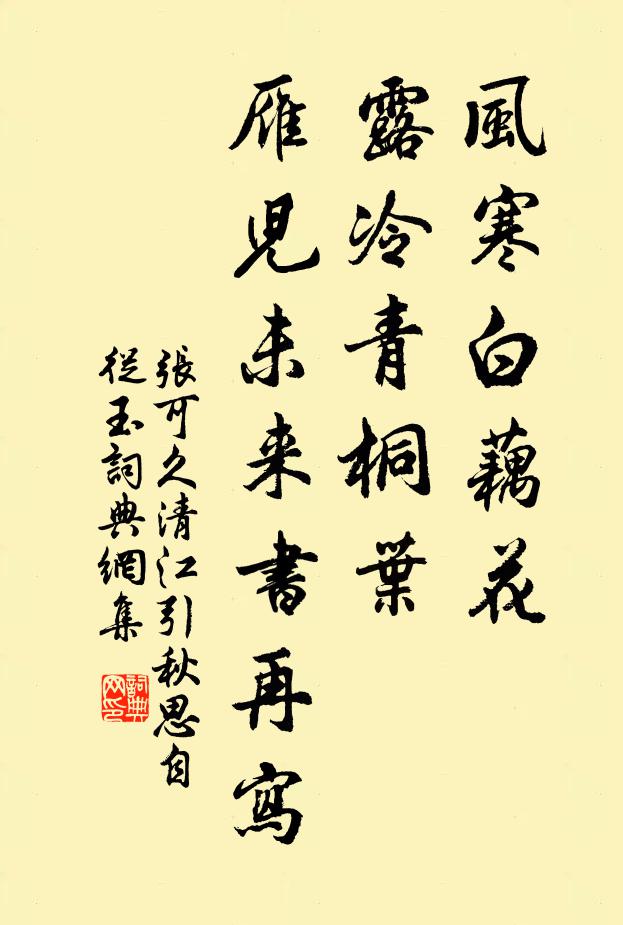 風寒白藕花
露冷青桐葉
雁児未来書再寫
張可久清江引秋思自
從玉詞典網集
詞典
网印